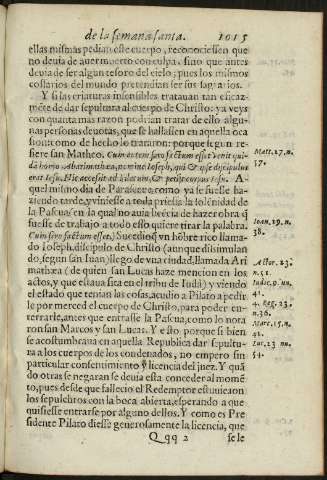 de la semana santa. 1015
ellas mismas pedian este cuerpo, reconociessen que
no deuia de auer muerto con culpa, sino que antes
deuia de ser algun tesoro del cielo; pues los mismos
cossarios del mundo pretendian ser sus
Y si las criaturas insensibles tratauan tan eficaz-
mēte de dar sepultura al cuerpo de Christo: ya veys
con quanta mas razon podrian tratar de esto algu-
nas personas deuotas, que se hallassen en aquella oca
sion: como de hecho lo trataron: porque segun re-
fiere san Matheo. Cum autem sero factum esset venit qui-
dā homo Abarimathea, nomine Ioseph, qui & ipse discipulus
erat Iesu. Hic accessit ad Pilatum, & petijt corpus Iesu. A-
quel mismo dia de Parasceue, como ya se fuesse ha-
ziendo tarde, y viniesse a toda priessa la solēnidad de
la Pascua (en la qual no auia licēcia de hazer obra q̄
fuesse de trabajo a todo esso quiere tirar la palabra.
Cum sero factum esset.) Sucedio q̄ vn hōbre rico llama-
do Ioseph, discipulo de Christo (aunque dissimulan
do, segun san Iuan) llego de vna ciudad, llamada Ari
mathæa (de quien san Lucas haze mencion en los
actos, y que estaua sita en el tribu de Iudà) y viendo
el estado que tenian las cosas, acudio a Pilato a pedir
le por merced el cuerpo de Christo, para poder en-
terrarle, antes que entrasse la Pascua, como lo nota
ron san Marcos y san Lucas. Y esto porque si bien
se acostumbraua en aquella Republica dar sepultu-
ra a los cuerpos de los condenados, no empero sin
particular consentimiento y licencia del juez. Y quā
do otras se negaran se deuia esta conceder al momē
to, pues desde que fallecio el Redemptor estuuieron
los sepulchros con la boca abierta, esperando a que
quisiesse entrarse por alguno dellos. Y como es Pre
sidente Pilato diesse generosamente la licencia, que
Qqq 2 se le
Matt. 27. n.
57.
Ioan. 19. n.
38.
Actor. 23.
n. 51.
Iudic. 9. nu.
41.
4. Reg. 23.
n. 36.
Marc. 15. n.
42.
Luc. 23. nu
54.